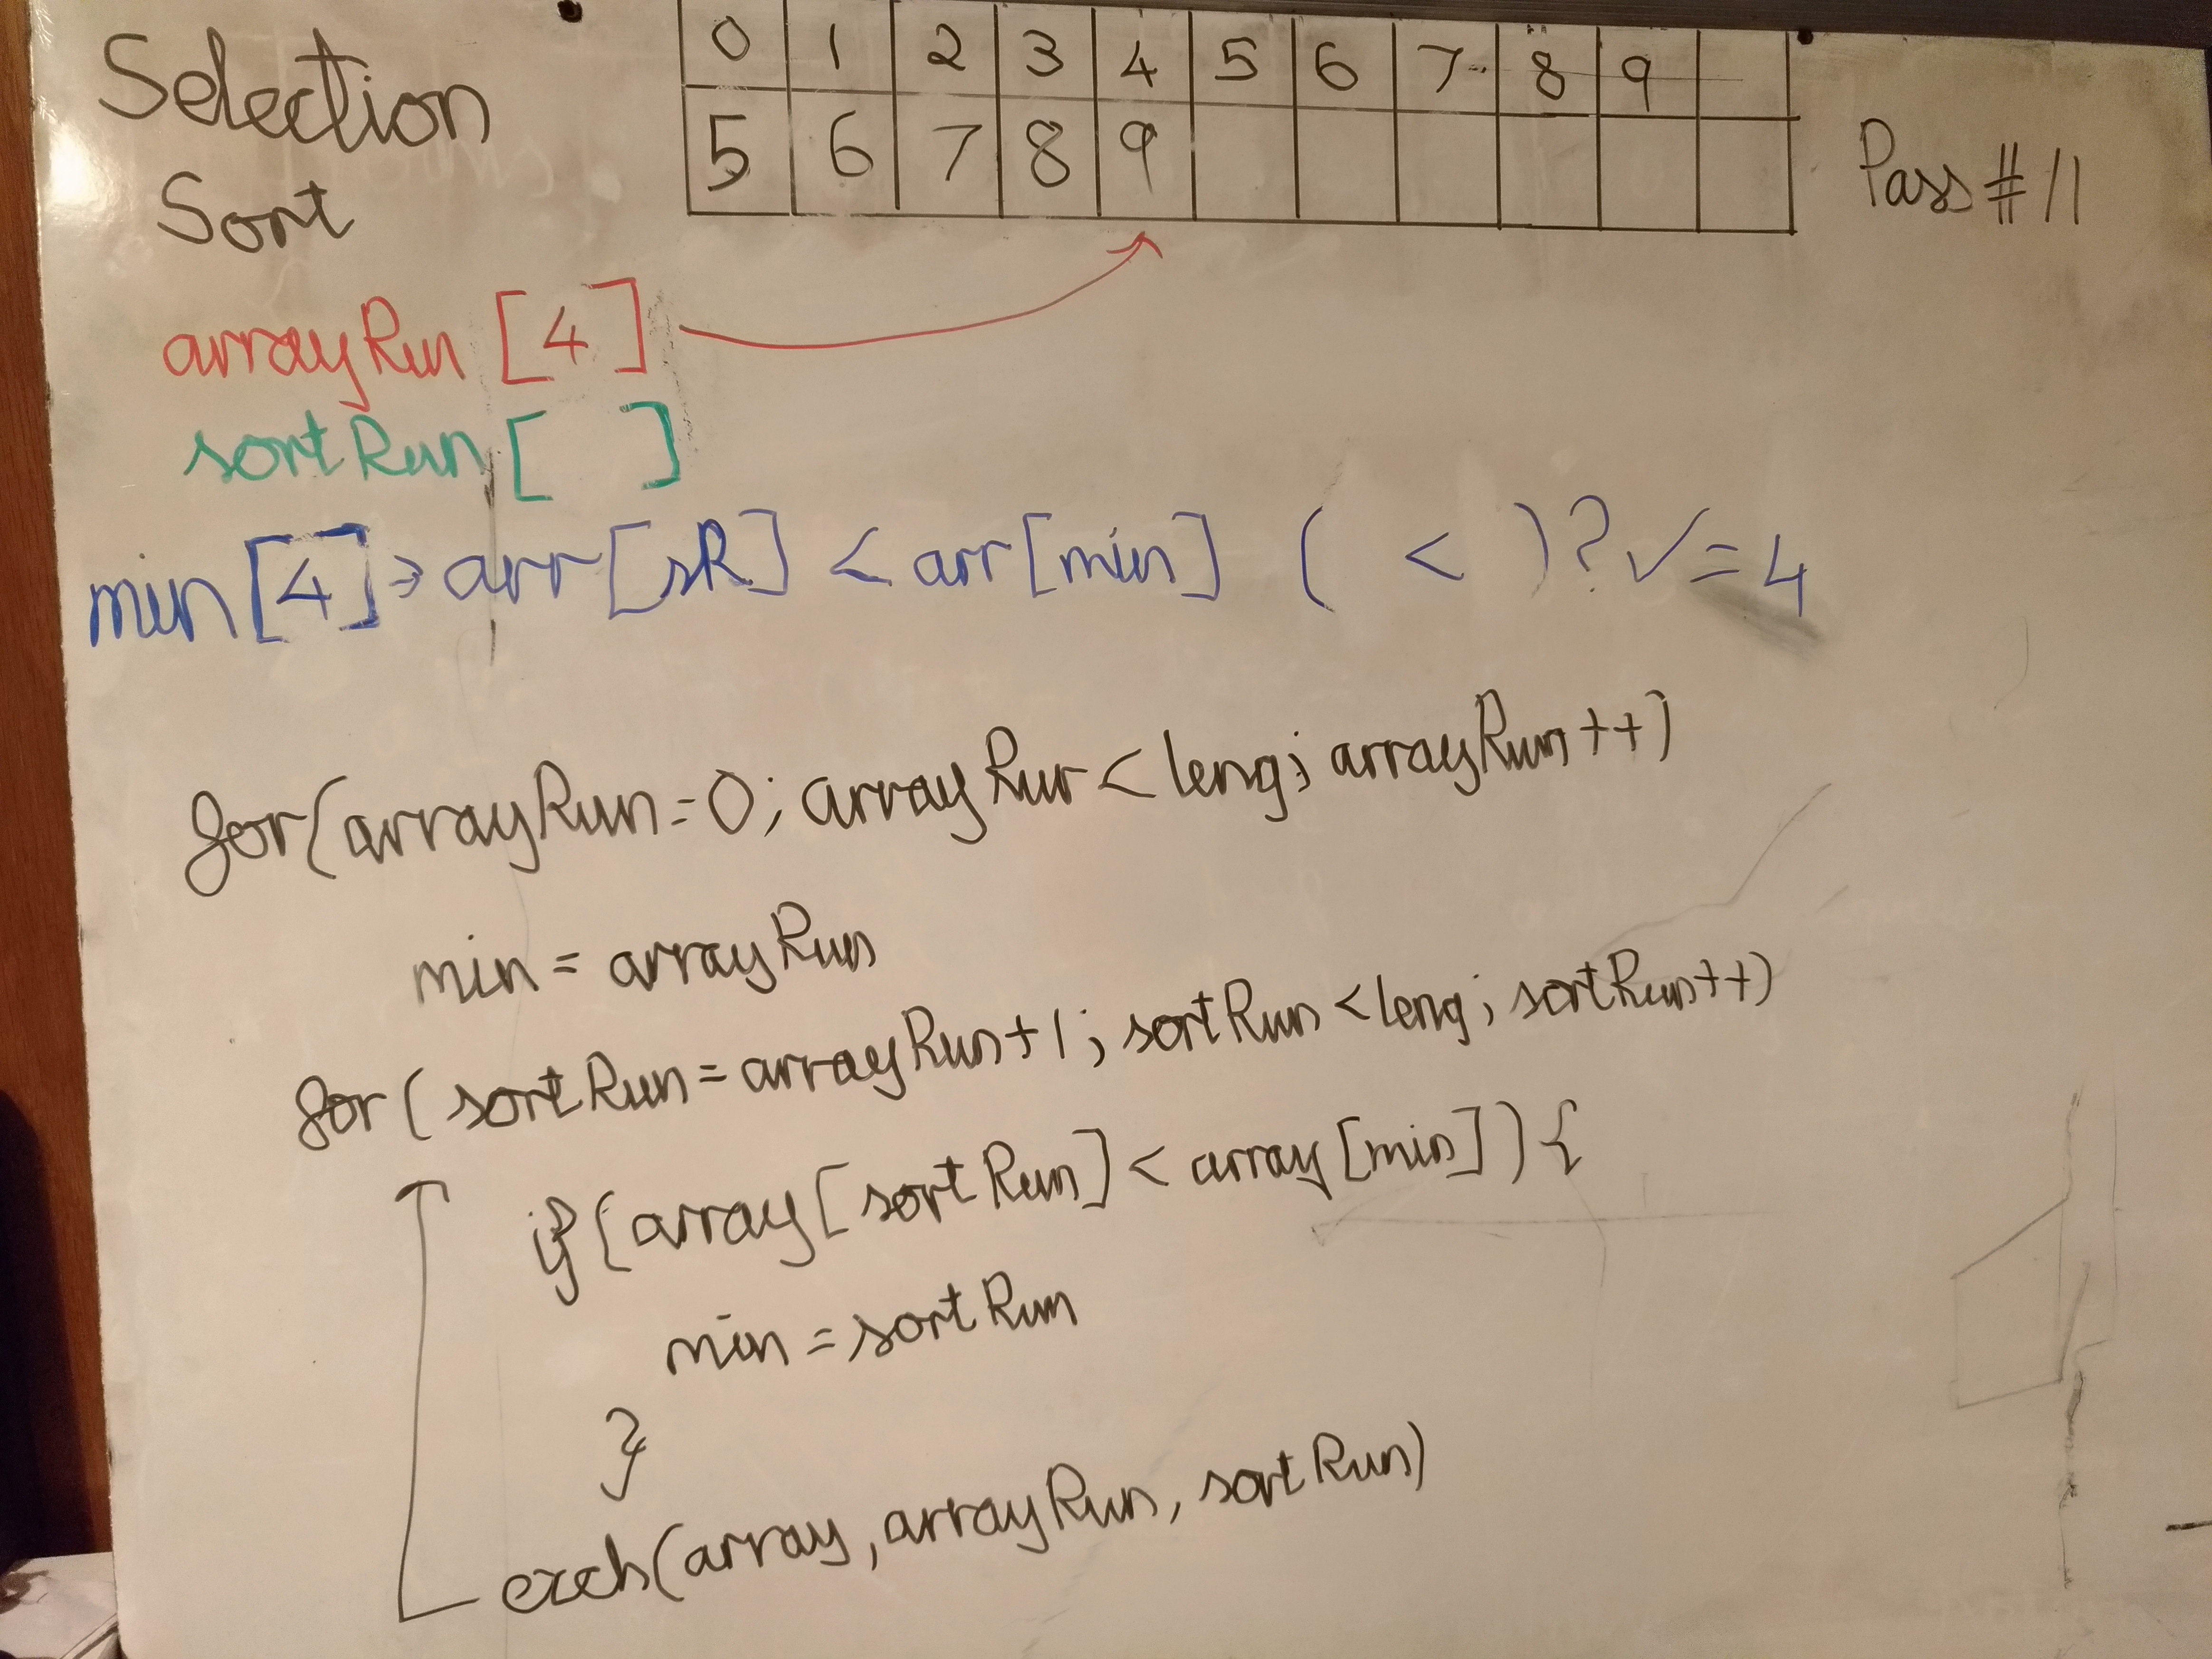 Selection
Sort
0 1 2 3 4 5 6 7 8 9
5 6 7 8 9
Pass #11
arrayRun [4]
sortRun [ ]
min [4] → arr [sR] < arr [min] ( < ) ? ✓ = 4
for(arrayRun=0; arrayRur < leng; arrayRun++)
min = arrayRun
for( sortRun = arrayRun+1; sortRun < leng; sortRun++)
if(array[sortRun] < array[min]) {
min = sortRun
}
exch(array, arrayRun, sortRun)